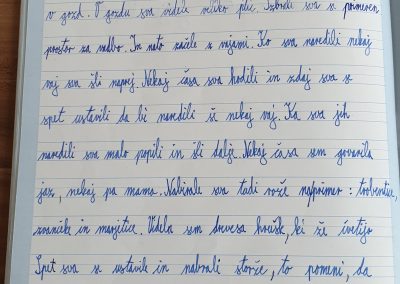 v gozd. V gozdu sva videli veliko ptic. Izbrali sva si primeren
prostor za vadbo. In nato začele z vajami. Ko sva naredili nekaj
vaj sva šli naprej. Nekaj časa sva hodili in zdaj sva se
spet ustavili da bi naredili še nekaj vaj. Ko sva jih
naredili sva malo popili in šli dalje. Nekaj časa sem govorila
jaz, nekaj pa mama. Nabirale sva tudi rože naprimer: trobentice,
zvončke in marjetice. Videla sem drevesa hrušk, ki že cvetijo
Spet sva se ustavile in nabrali storže, to pomeni, da